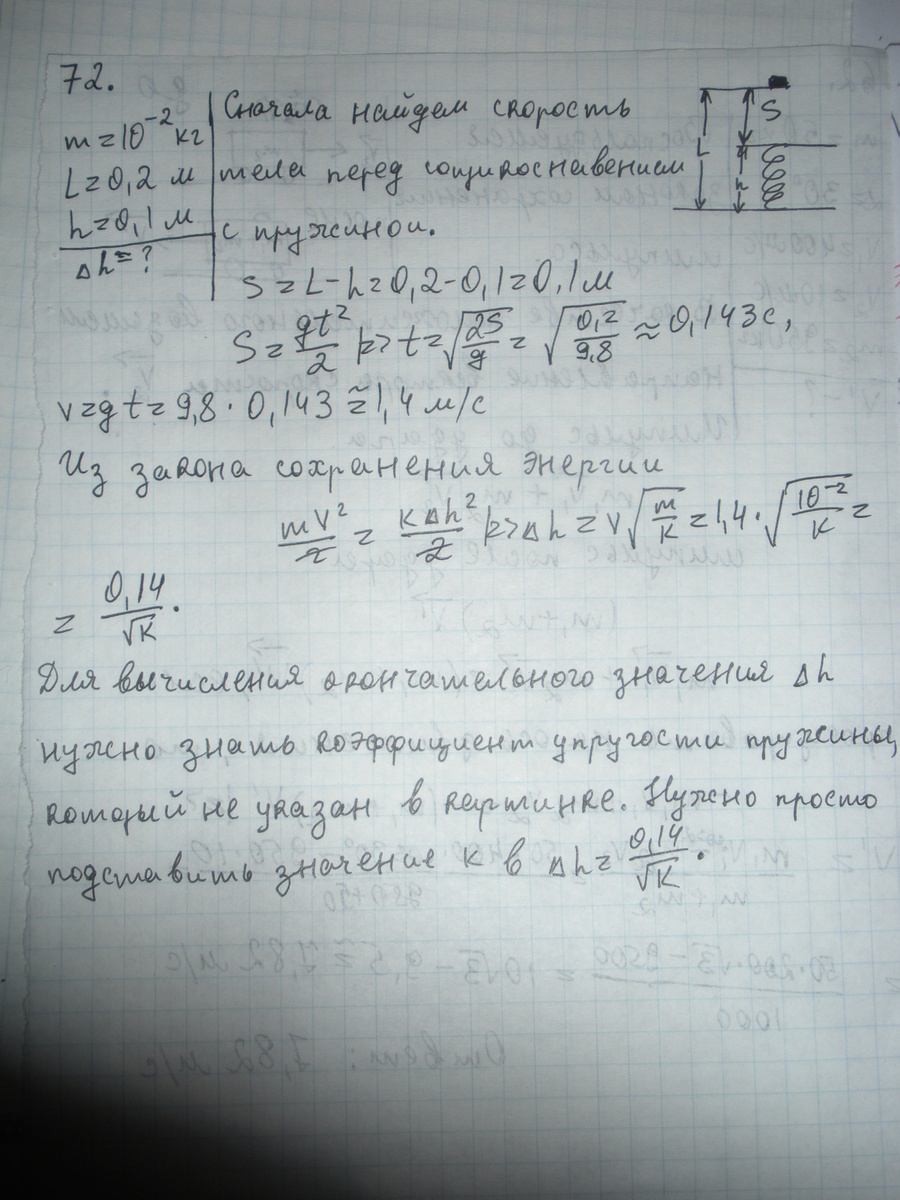 72.
m = 10⁻² кг
L = 0,2 м
h = 0,1 м
Δh = ?
Сначала найдем скорость
тела перед соприкосновением
с пружиной.
L
S
h
S = L - h = 0,2 - 0,1 = 0,1 м
S = gt²/2 => t = √(2S/g) = √(0,2/9,8) ≈ 0,143 с,
v = gt = 9,8 · 0,143 ≈ 1,4 м/с
Из закона сохранения энергии
mv²/2 = kΔh²/2 => Δh = v√(m/k) = 1,4 · √(10⁻²/k) =
= 0,14/√k.
Для вычисления окончательного значения Δh
нужно знать коэффициент упругости пружины,
который не указан в картинке. Нужно просто
подставить значение k в Δh = 0,14/√k.